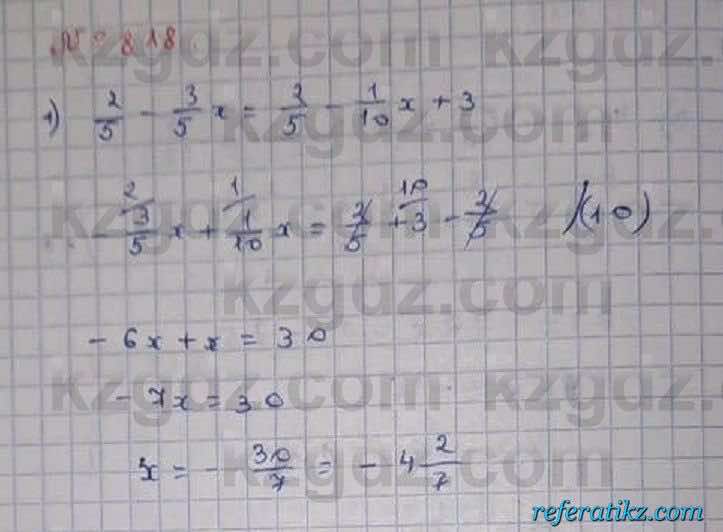 № 818.
1) 2/5 - 3/5 x = 2/5 - 1/10 x + 3
- 2/ 3/5 x + 1/ 1/10 x = 2/5 + 10/ 3 - 2/5 /(10)
- 6x + x = 30
- 7x = 30
x = - 30/7 = - 4 2/7
kzgdz.com
kzgdz.com
kzgdz.com
kzgdz.com
kzgdz.com
referatikz.com